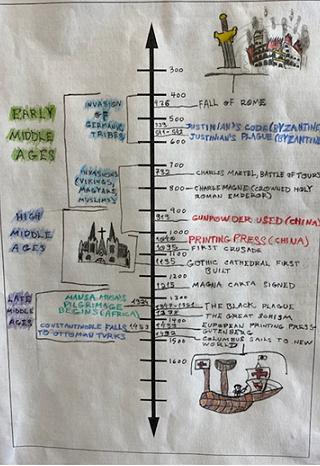 300
400
476 FALL OF ROME
500
JUSTINIAN'S CODE (BYZANTINE
JUSTINIAN'S PLAGUE (BYZANTINE
600
700
732 CHARLES MARTEL, BATTLE OF TOURS
800 CHARLEMAGNE (CROWNED HOLY
ROMAN EMPEROR)
900
919 GUNPOWDER USED (CHINA)
1000
PRINTING PRESS (CHINA)
FIRST CRUSADE
1100
1135 GOTHIC CATHEDRAL FIRST
BUILT
1200
1215 MAGNA CARTA SIGNED
1300
THE BLACK PLAGUE
THE GREAT SCHISM
1400
EUROPEAN PRINTING PRESS-
GUTENBERG
COLUMBUS SAILS TO NEW
WORLD
1500
1600
EARLY
MIDDLE
AGES
INVASION
OF
GERMANIC
TRIBES
INVASIONS
(VIKINGS,
MAGYARS
MUSLIMS)
HIGH
MIDDLE
AGES
LATE
MIDDLE
AGES
MANSA MUSA'S
PILGRIMAGE
BEGINS (AFRICA)
CONSTANTINOPLE FALLS 1453
TO OTTOMAN TURKS